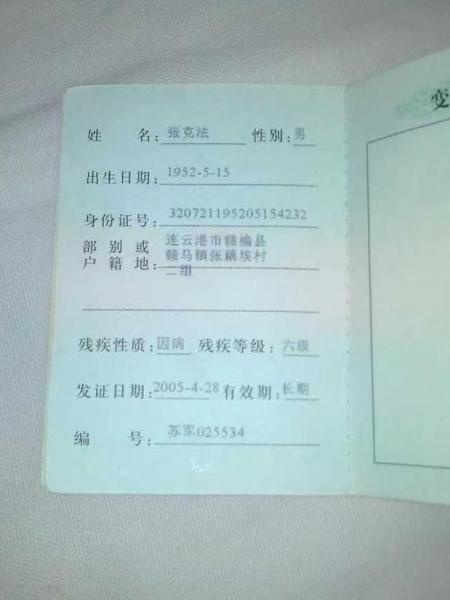 变
姓 名: 张克法 性别: 男
出生日期: 1952-5-15
身份证号: 320721195205154232
部别或 连云港市赣榆县
户籍地: 赣马镇张藕埃村
二组
残疾性质: 因病 残疾等级: 六级
发证日期: 2005-4-28 有效期: 长期
编 号: 苏军025534